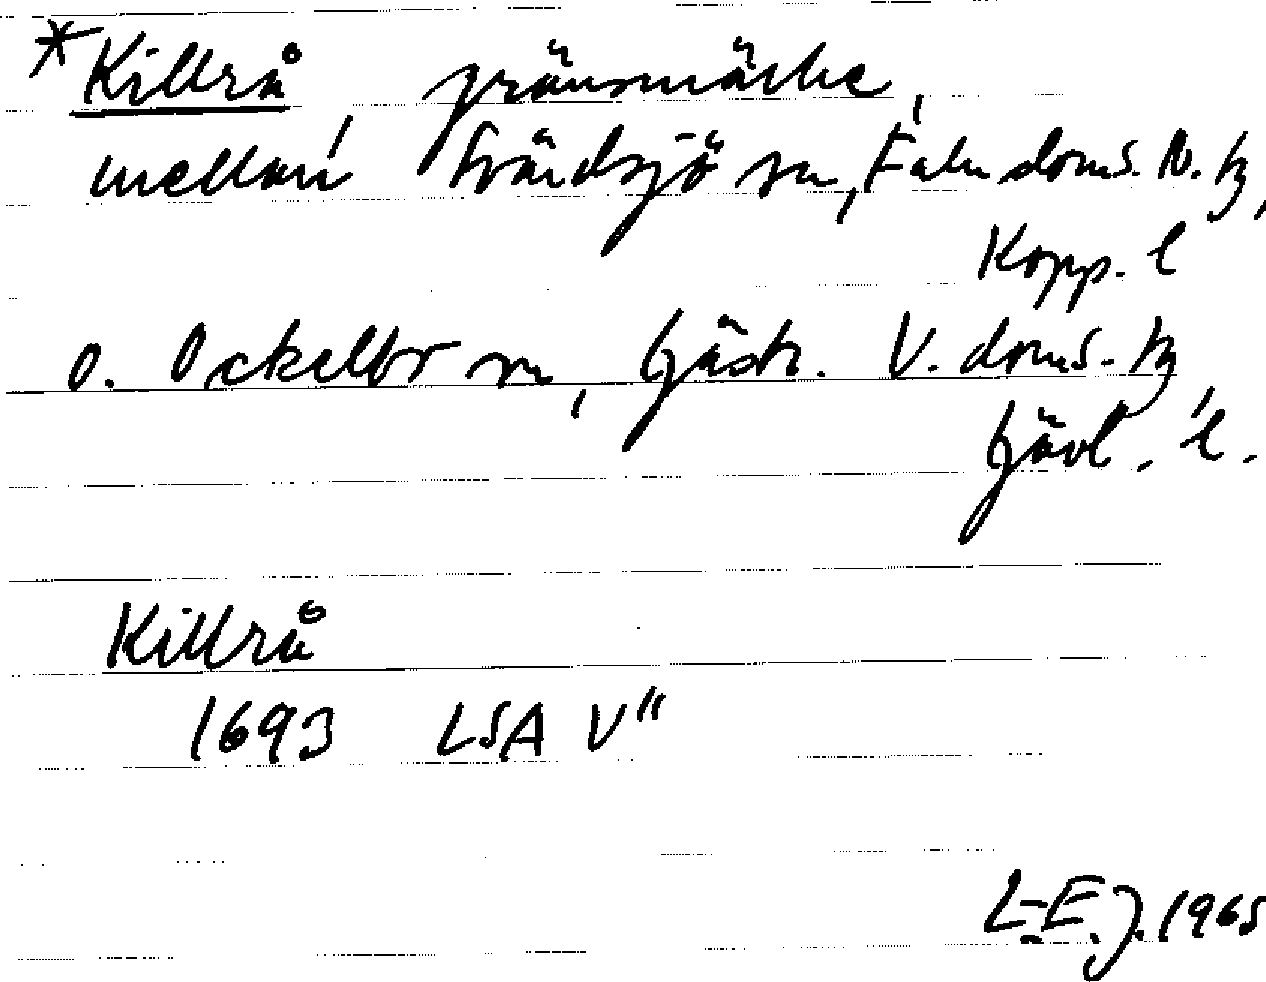 *Killrå, gränsmärke,
mellan Svärdsjö sn, Falu doms. N. tg,
Kopp. l
o. Ockelbo sn, Gästr. V. doms. tg
Gävl. l.
Killrå
1693 LSA V"
L-E. J. 1965